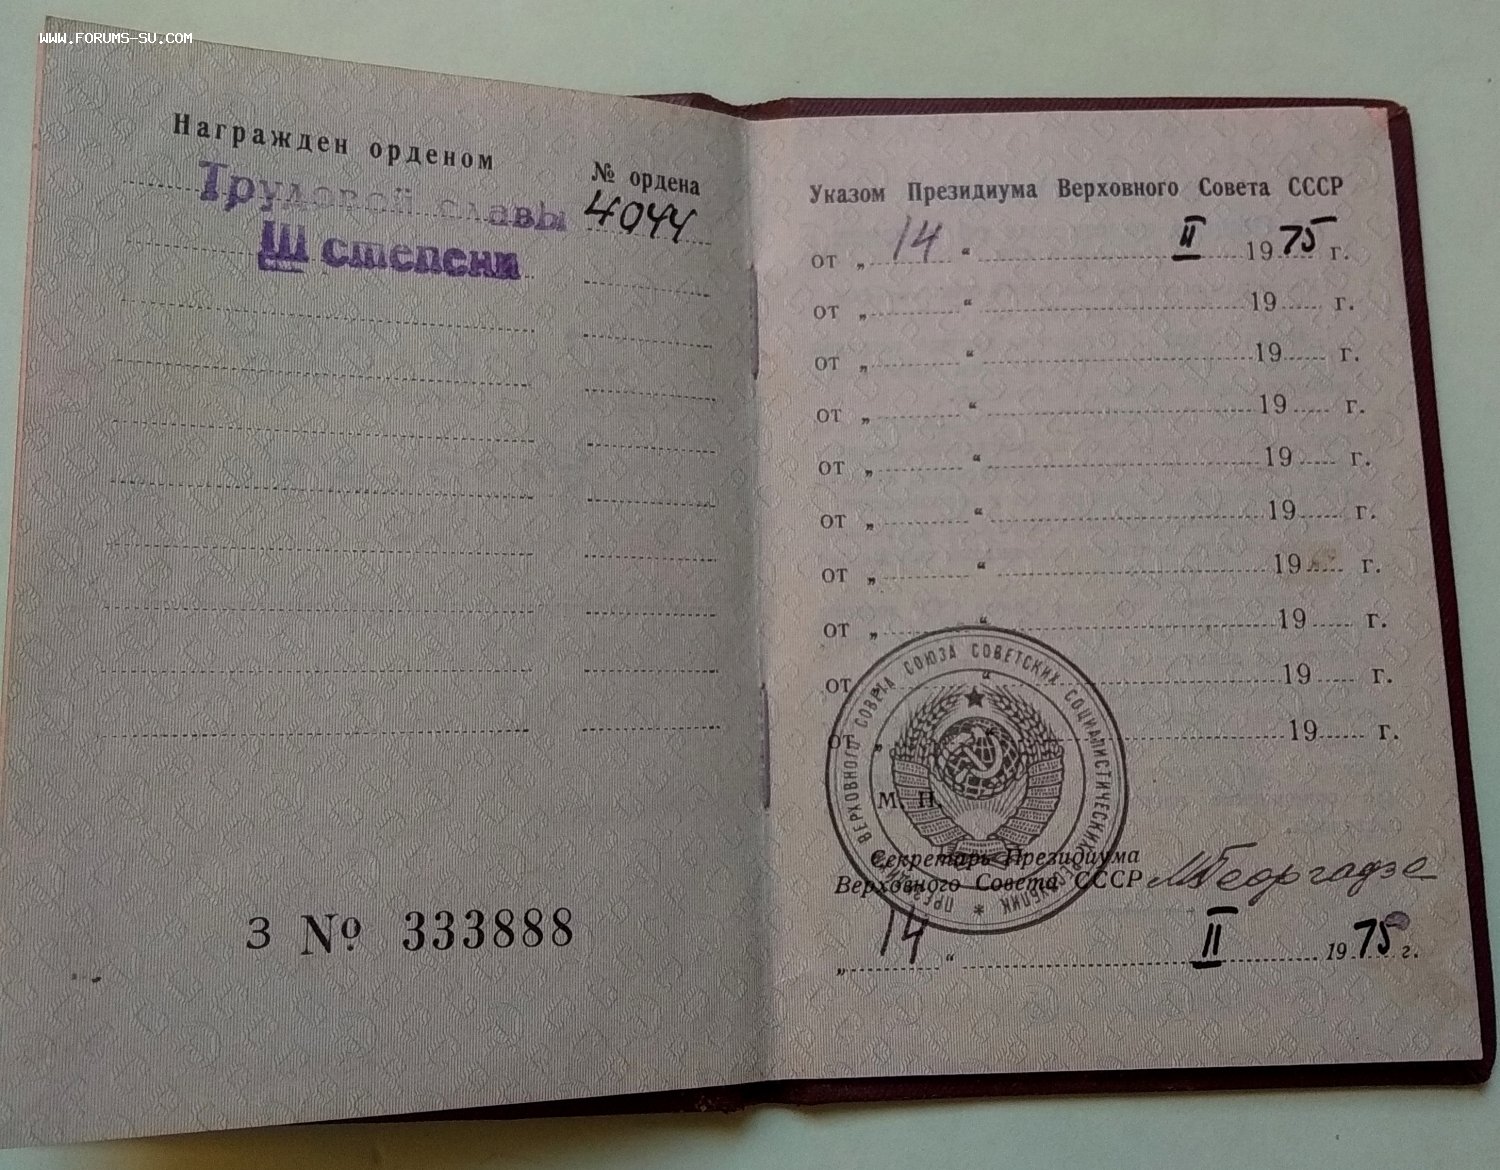 WWW.FORUMS-SU.COM
Награжден орденом
№ ордена
Трудовой славы
4044
III степени
З № 333888
Указом Президиума Верховного Совета СССР
от „ 14 “ II 1975 г.
от „ “ 19 г.
от „ “ 19 г.
от „ “ 19 г.
от „ “ 19 г.
от „ “ 19 г.
от „ “ 19 г.
от „ “ 19 г.
от „ “ 19 г.
от „ “ 19 г.
ПРЕЗИДИУМ ВЕРХОВНОГО СОВЕТА СОЮЗА СОВЕТСКИХ СОЦИАЛИСТИЧЕСКИХ РЕСПУБЛИК *
М. П.
Секретарь Президиума
Верховного Совета СССР МГеоргадзе
„ 14 “ II 1975 г.